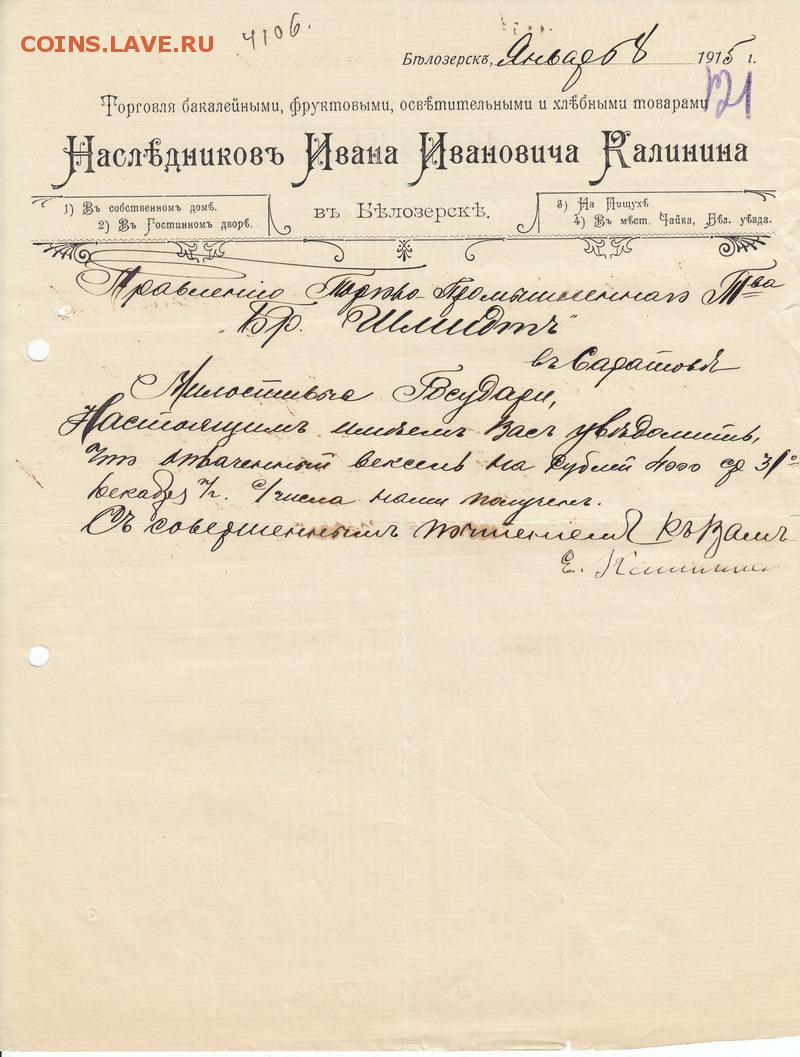 COINS.LAVE.RU
4106.
Бѣлозерскъ, Январь 8 1915 г.
121
Торговля бакалейными, фруктовыми, освѣтительными и хлѣбными товарами
Наслѣдниковъ Ивана Ивановича Калинина
1) Въ собственномъ домѣ.
2) Въ Гостинномъ дворѣ.
въ Бѣлозерскѣ.
3) На Пищухѣ
4) Въ мѣст. Чайка, Бѣл. уѣзда.
Правленію Торгово-Промышленнаго Т-ва
"Бр. Шмидтъ"
въ Саратовѣ
Милостивые Государи,
Настоящимъ имѣемъ Васъ увѣдомить,
что оплаченный вексель на рублей 4000 ср 31го
декабря п/г. с/числа нами полученъ.
Съ совершеннымъ почтеніемъ къ Вамъ
Е. Калинина